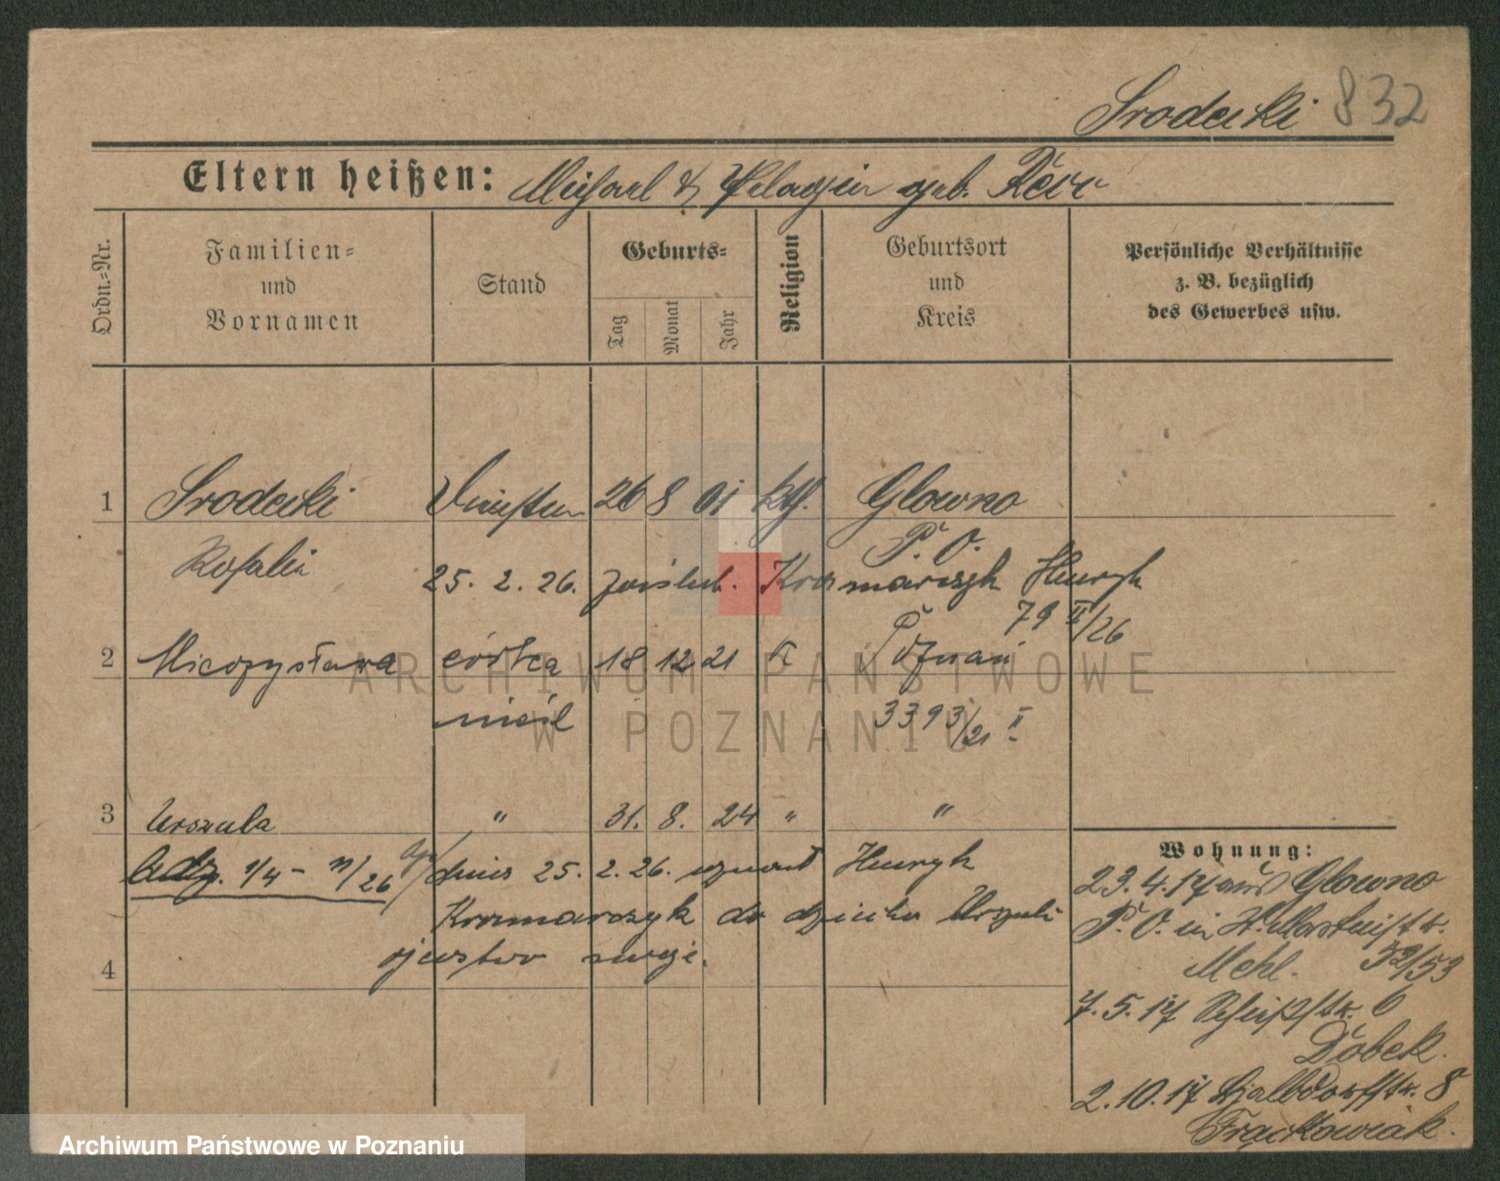 Srodecki 832
Eltern heißen: Michael & Pelagia geb.
Ordn.-Nr.
Familien-
und
Vornamen
Stand
Geburts-
Tag
Monat
Jahr
Religion
Geburtsort
und
Kreis
Persönliche Verhältnisse
z. B. bezüglich
des Gewerbes usw.
1 Srodecki 26 8 01 kth. Glowno
P. O.
Rosalia 25. 2. 26. zaślub. Kromarczyk Henryk
79 II/26
2 Mieczysława córka 18 12 21 K Poznań
nieśl 3393/21 II
3 Urszula " 31. 8. 24 " "
Adz. 1/4 - 11/26 dnia 25. 2. 26. uznał Henryk
Kromarczyk do dziecka Urszuli
ojcostwo swoje.
4
Wohnung:
23. 4. 17 aus Glowno
P. O. in
Mehl. 52/53
7. 5. 17 6
Dobek.
2. 10. 17 8
Frąckowiak.
ARCHIWUM PAŃSTWOWE
W POZNANIU
Archiwum Państwowe w Poznaniu